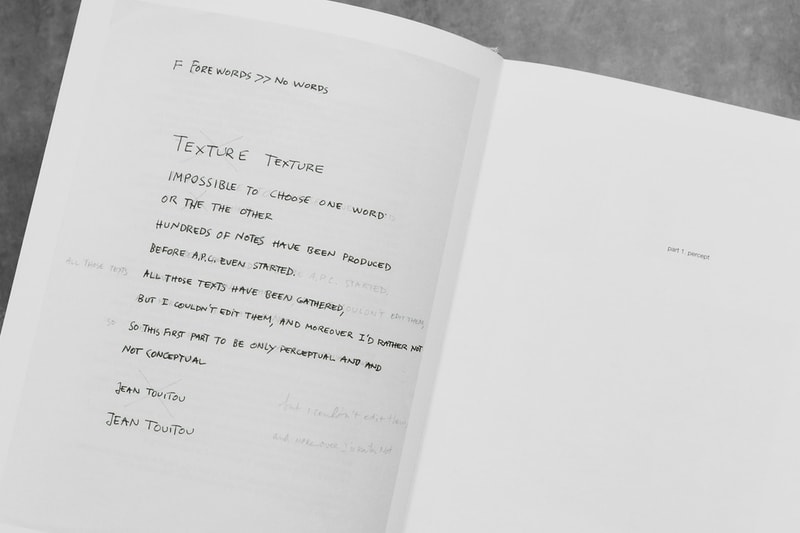 F FOREWORDS >> NO WORDS
TEXTURE TEXTURE
IMPOSSIBLE TO CHOOSE ONE WORD
OR THE THE OTHER
HUNDREDS OF NOTES HAVE BEEN PRODUCED
BEFORE A.P.C. EVEN STARTED.
ALL THOSE TEXTS ALL THOSE TEXTS HAVE BEEN GATHERED,
BUT I COULDN'T EDIT THEM, AND MOREOVER I'D RATHER NOT
SO SO THIS FIRST PART TO BE ONLY PERCEPTUAL AND AND
NOT CONCEPTUAL
JEAN TOUITOU
JEAN TOUITOU
but I couldn't edit them,
and moreover I'd rather not
part 1. percept